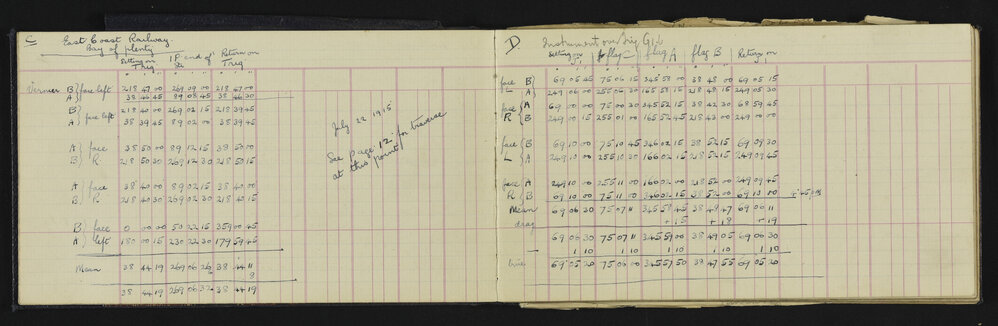 C East Coast Railway.
Bay of plenty
Setting on Trig 1P end of Str Return on Trig
Vernier B} face left 218 47 00 269 09 00 218 47 00
A} 38 46 45 89 08 45 38 46 30
B} face left 218 40 00 269 02 15 218 39 45
A} 38 39 45 89 02 00 38 39 45
A} face 38 50 00 89 12 15 38 50 00
B} R. 218 50 30 269 12 30 218 50 15
A} face 38 40 00 89 02 15 38 40 00
B} R. 218 40 30 269 02 30 218 40 15
B} face 0 00 00 50 22 15 359 00 45
A} left 180 00 15 230 22 30 179 59 45
Mean 38 44 19 269 06 26 38 44 11
8
38 44 19 269 06 32 38 44 19
July 22 1915
See page 12 for traverse
at this point
D. Instrument over Trig
Setting on flag C flag A flag B Return on
face B} 69 05 45 75 06 15 345 58 00 38 48 00 69 05 15
L A} 249 06 00 255 06 30 165 58 15 218 48 15 249 05 30
face A 69 00 00 75 00 30 345 52 15 38 42 30 68 59 45
R B 249 00 15 255 01 00 165 52 45 218 43 00 249 00 00
face B 69 10 00 75 10 45 346 02 15 38 52 15 69 09 30
L A 249 10 00 255 10 30 166 02 15 218 52 15 249 09 45
face A 249 10 00 255 11 00 166 02 00 218 52 00 249 09 45
R B 69 10 00 75 11 00 346 02 15 38 52 00 69 10 00
Mean 69 06 30 75 07 11 345 58 45 38 48 47 69 06 11
drag + 15 + 18 + 19
69 06 30 75 07 11 345 59 00 38 49 05 69 06 30
— 1 10 1 10 1 10 1 10 1 10
true 69 05 20 75 06 00 345 57 50 38 47 55 69 05 20